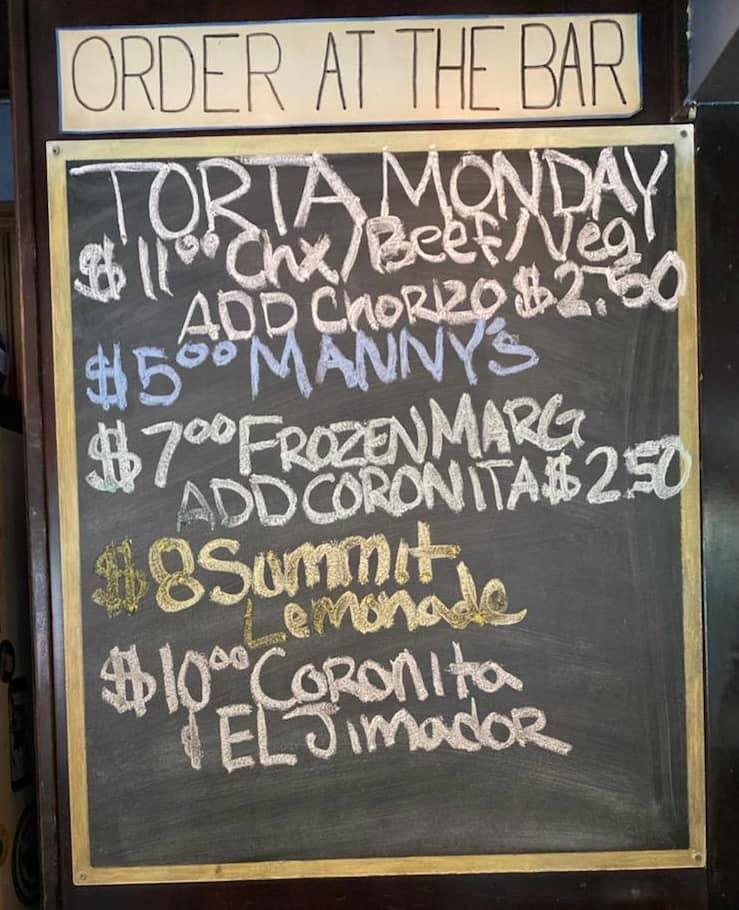 ORDER AT THE BAR
TORTA MONDAY
$11.00 Chx/Beef/Veg
ADD CHORIZO $2.50
$5.00 MANNY'S
$7.00 FROZEN MARG
ADD CORONITA $2.50
$8 Summit
Lemonade
$10.00 CORONITA
| EL JimadOR